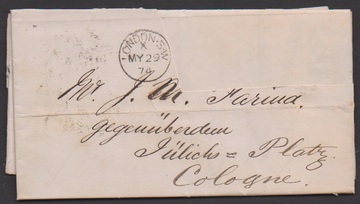 LONDON·S.W
X
MY 29
74
Mr. J. M. Farina.
gegenüberdem
Jülichs = Platz
Cologne.